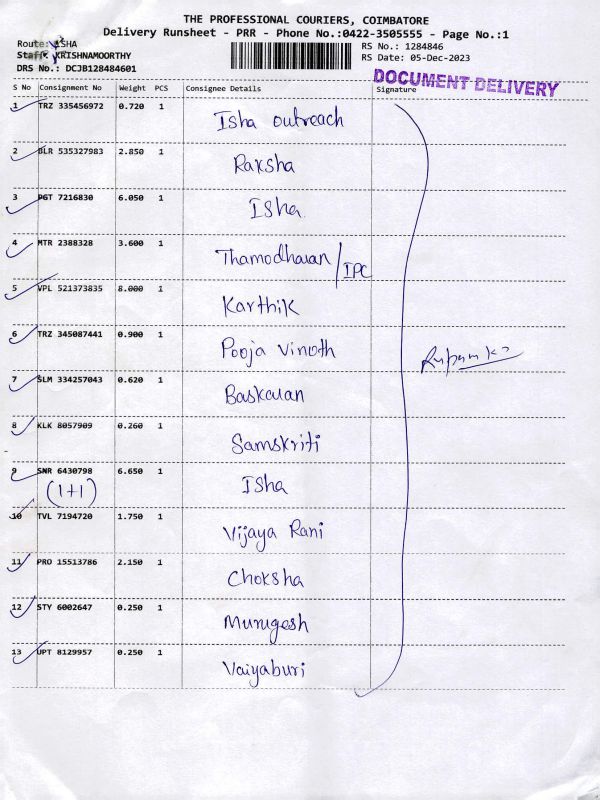 THE PROFESSIONAL COURIERS, COIMBATORE
Delivery Runsheet - PRR - Phone No.:0422-3505555 - Page No.:1
Route: ISHA
Staff: KRISHNAMOORTHY
DRS No.: DCJB128484601
RS No.: 1284846
RS Date: 05-Dec-2023
DOCUMENT DELIVERY
S No Consignment No Weight PCS Consignee Details Signature
1 TRZ 335456972 0.720 1 Isha Outreach
2 BLR 535327983 2.850 1 Raksha
3 PGT 7216830 6.050 1 Isha
4 MTR 2388328 3.600 1 Thamodharan / IPC
5 VPL 521373835 8.000 1 Karthik
6 TRZ 345087441 0.900 1 Pooja Vinoth
7 SLM 334257043 0.620 1 Baskaran
8 KLK 8057909 0.260 1 Samskriti
9 SNR 6430798 6.650 1 Isha
(1+1)
10 TVL 7194720 1.750 1 Vijaya Rani
11 PRO 15513786 2.150 1 Choksha
12 STY 6002647 0.250 1 Murugesh
13 UPT 8129957 0.250 1 Vaiyaburi